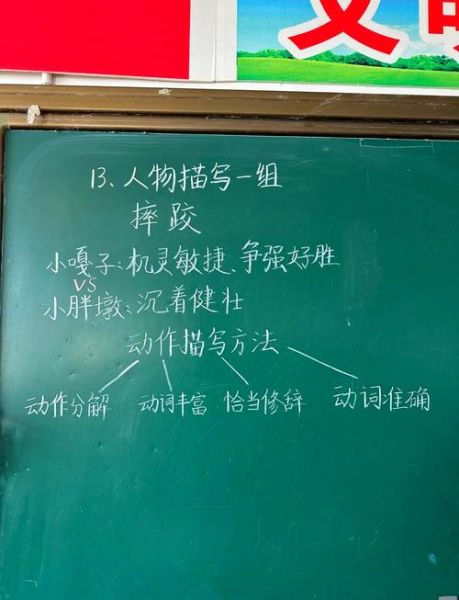 文明
13、人物描写一组
摔跤
小嘎子:机灵敏捷、争强好胜
VS
小胖墩:沉着健壮
动作描写方法
动作分解 动词丰富 恰当修辞 动词准确